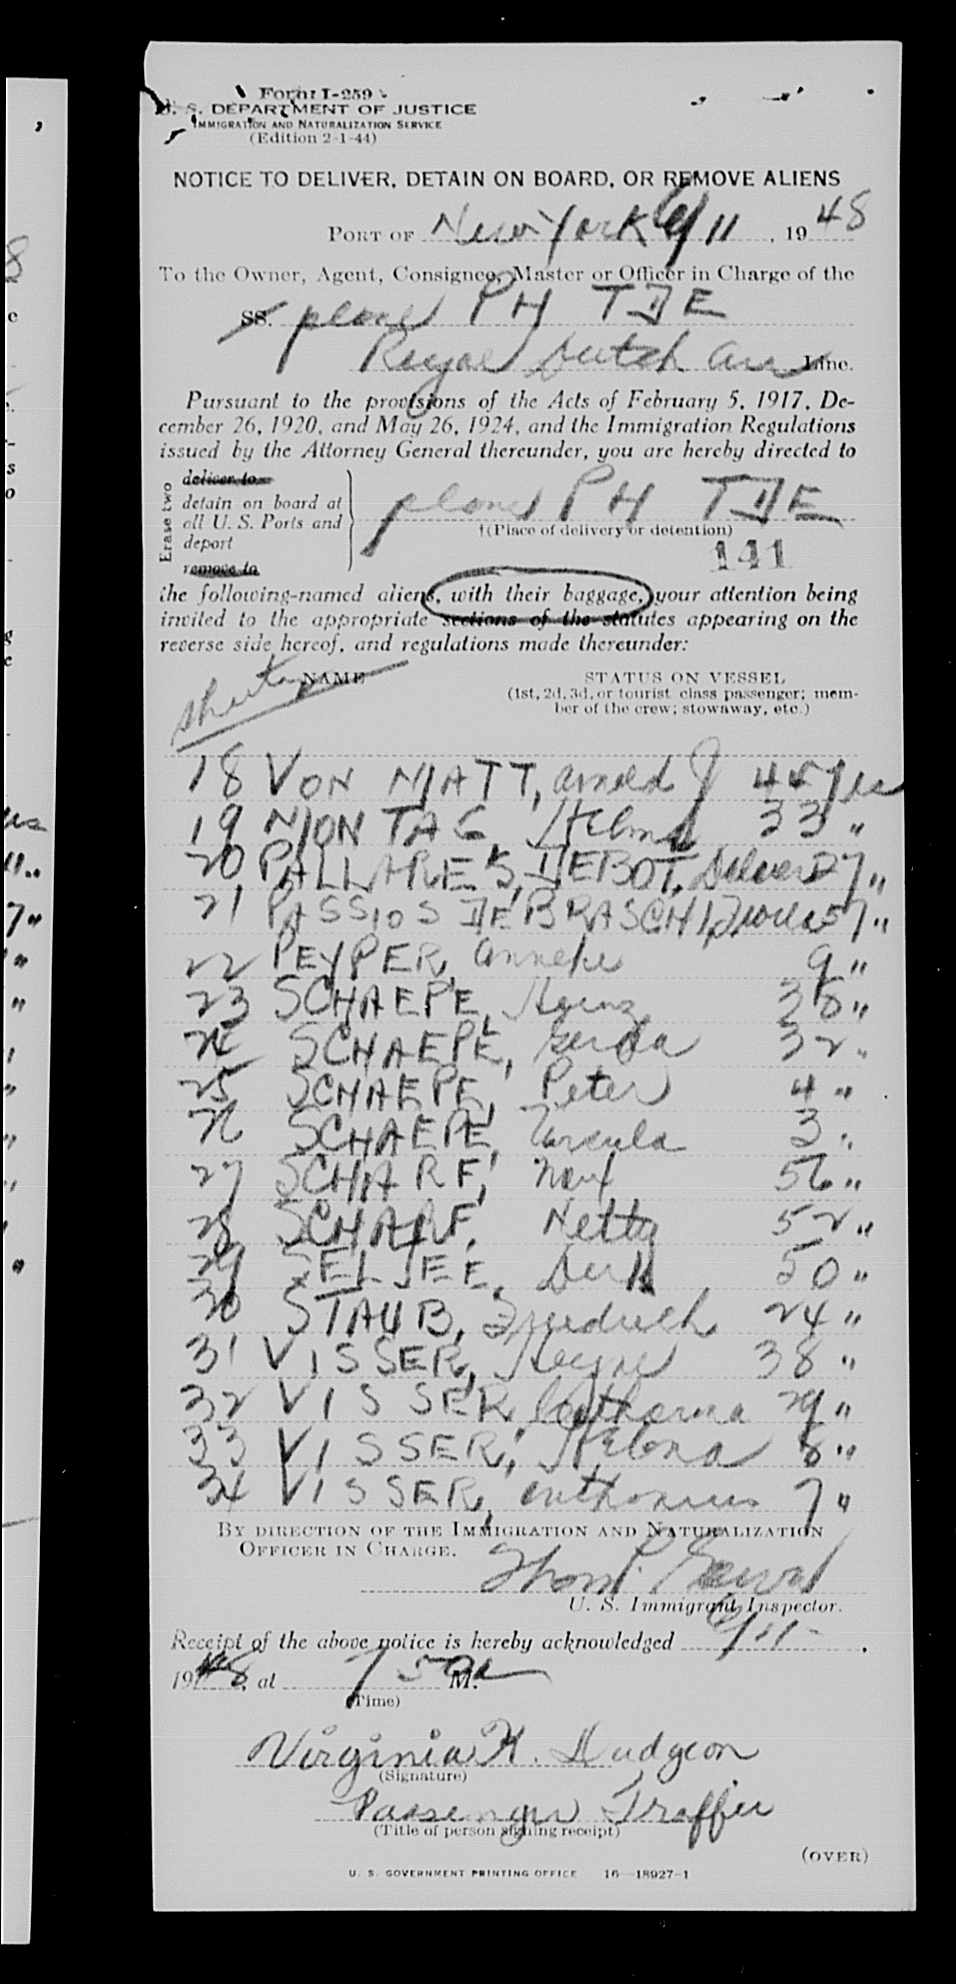 Form I-259
U. S. DEPARTMENT OF JUSTICE
IMMIGRATION AND NATURALIZATION SERVICE
(Edition 2-1-44)
NOTICE TO DELIVER, DETAIN ON BOARD, OR REMOVE ALIENS
PORT OF New York 6/11, 1948
To the Owner, Agent, Consignee, Master or Officer in Charge of the
SS. plane PH TDE
Royal Dutch Air Line.
Pursuant to the provisions of the Acts of February 5, 1917, De-
cember 26, 1920, and May 26, 1924, and the Immigration Regulations
issued by the Attorney General thereunder, you are hereby directed to
Erase two
deliver to
detain on board at
all U. S. Ports and
deport
remove to
plane PH TDE
†(Place of delivery or detention)
141
the following-named aliens, with their baggage, your attention being
invited to the appropriate sections of the statutes appearing on the
reverse side hereof, and regulations made thereunder:
NAME STATUS ON VESSEL
(1st, 2d, 3d, or tourist class passenger; mem-
ber of the crew; stowaway, etc.)
18 VON NIATT, Arnold J 45 yrs
19 MONTAG Helma 33 "
20 PALLARES, DEBOT, 27 "
21 PASSIOS DE BRASCHI, 57 "
22 PEYPER, Anneke 9 "
23 SCHAEPE, Heinz 38 "
24 SCHAEPE, Gerda 32 "
25 SCHAEPE, Peter 4 "
26 SCHAEPE, Ursula 3 "
27 SCHARF, Max 56 "
28 SCHARF, Netty 52 "
29 SELJEE, Dirk 50 "
30 STAUB, Friedrich 24 "
31 VISSER, 38 "
32 VISSER, Catharina 29 "
33 VISSER, Helena 8 "
34 VISSER, Anthonius 7 "
BY DIRECTION OF THE IMMIGRATION AND NATURALIZATION
OFFICER IN CHARGE.
Thos P.
U. S. Immigrant Inspector.
Receipt of the above notice is hereby acknowledged 6/11,
1948, at 750a M.
(Time)
Virginia K. Dudgeon
(Signature)
Passenger Traffic
(Title of person signing receipt)
(OVER)
U. S. GOVERNMENT PRINTING OFFICE 16—18927-1